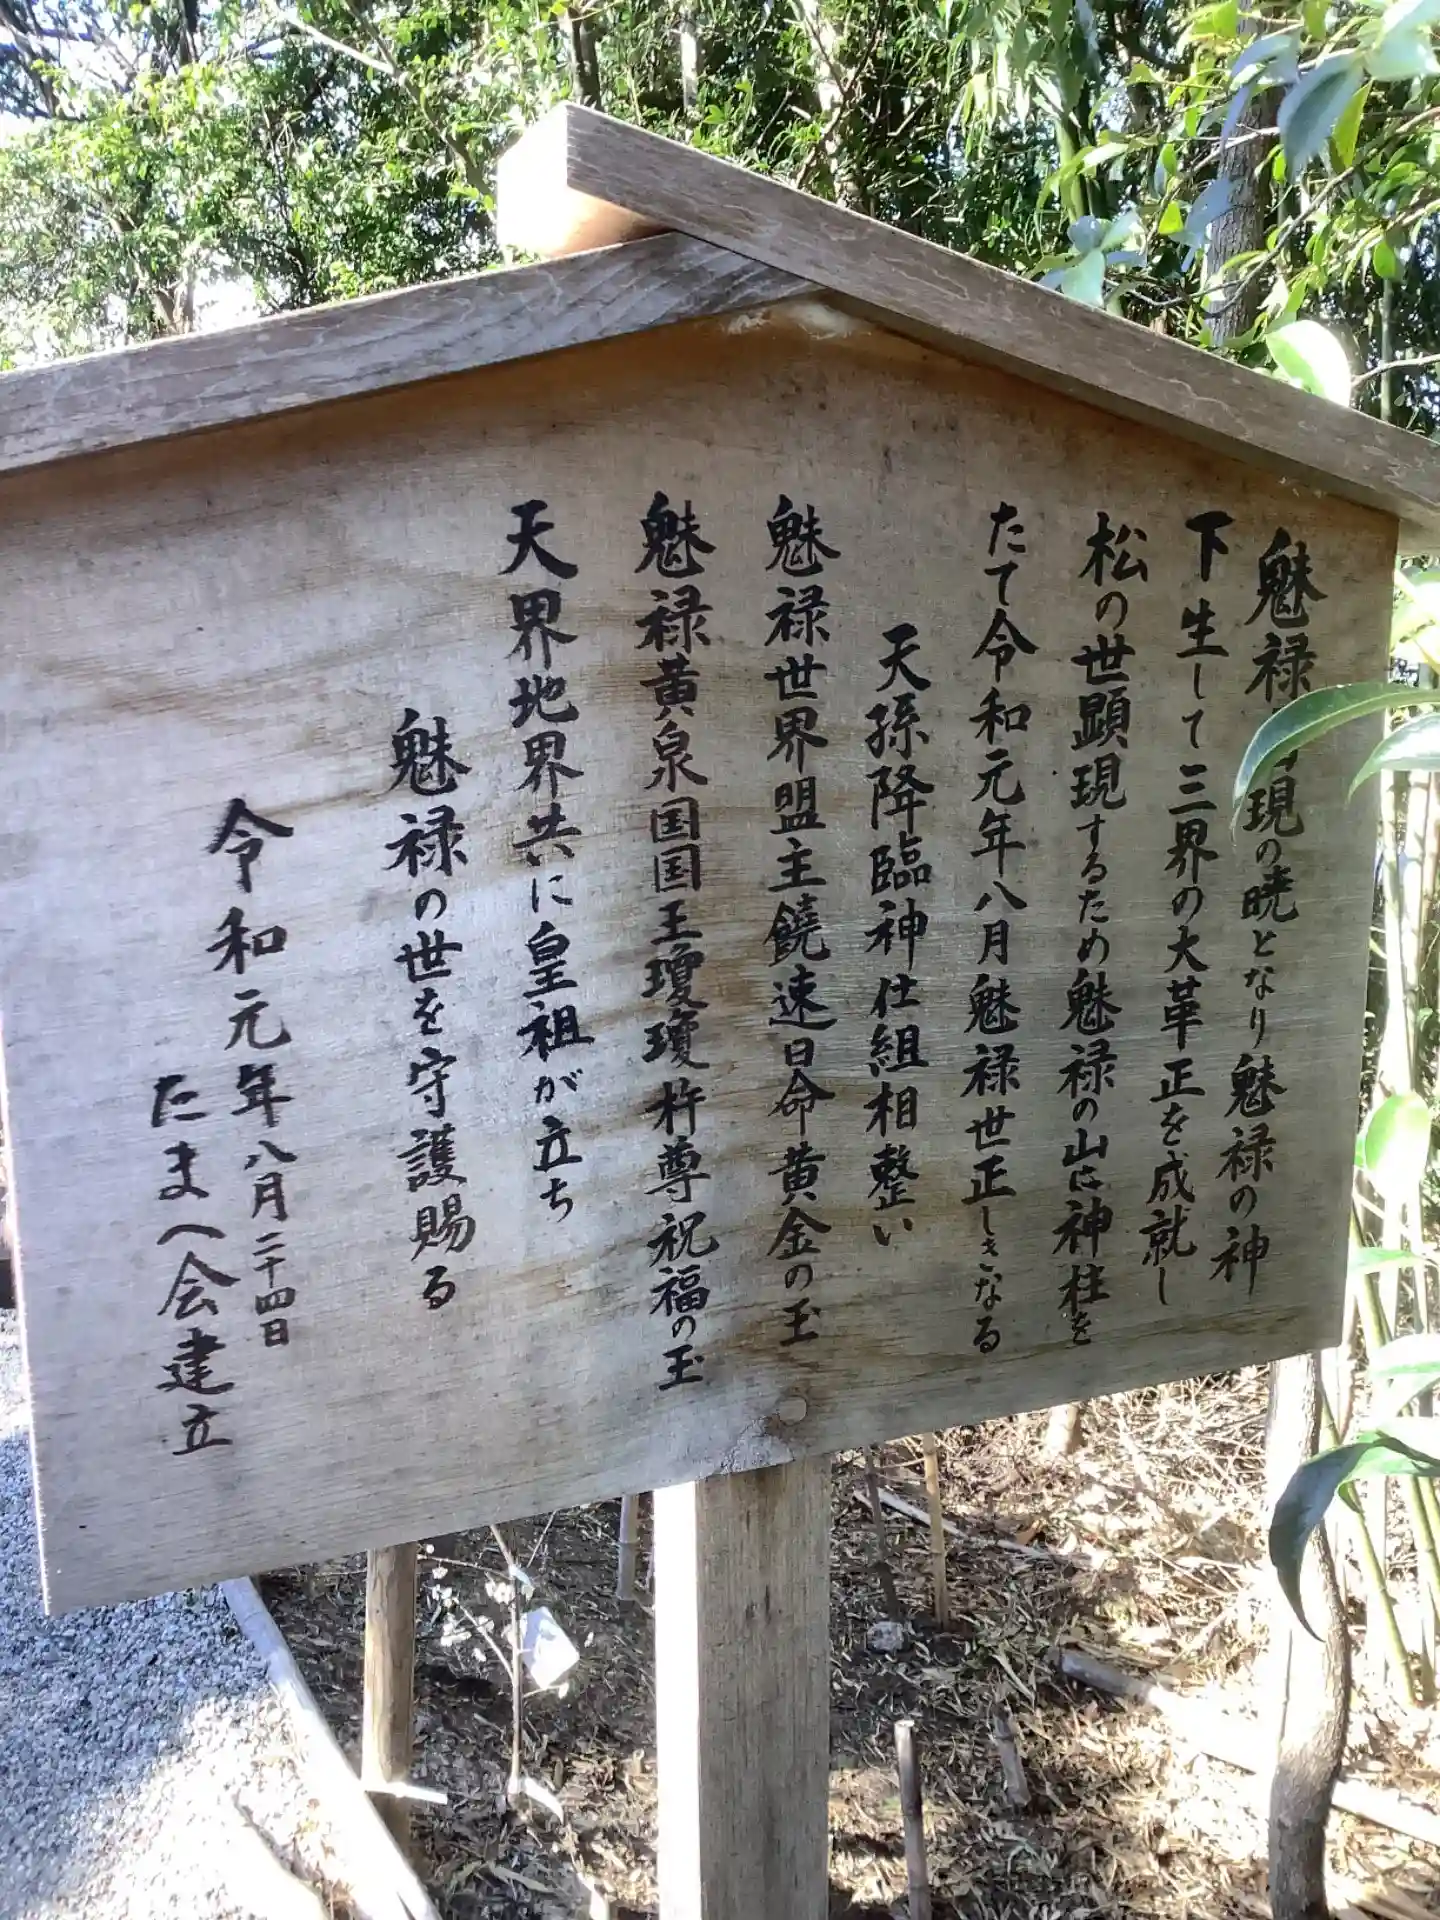 魅禄 現の暁となり魅禄の神
下生して三界の大革正を成就し
松の世顕現するため魅禄の山に神柱を
たて令和元年八月魅禄世正しきなる
天孫降臨神仕組相整い
魅禄世界盟主饒速日命黄金の玉
魅禄黄泉国国王瓊瓊杵尊祝福の玉
天界地界共に皇祖が立ち
魅禄の世を守護賜る
令和元年八月二十四日
たまへ会建立